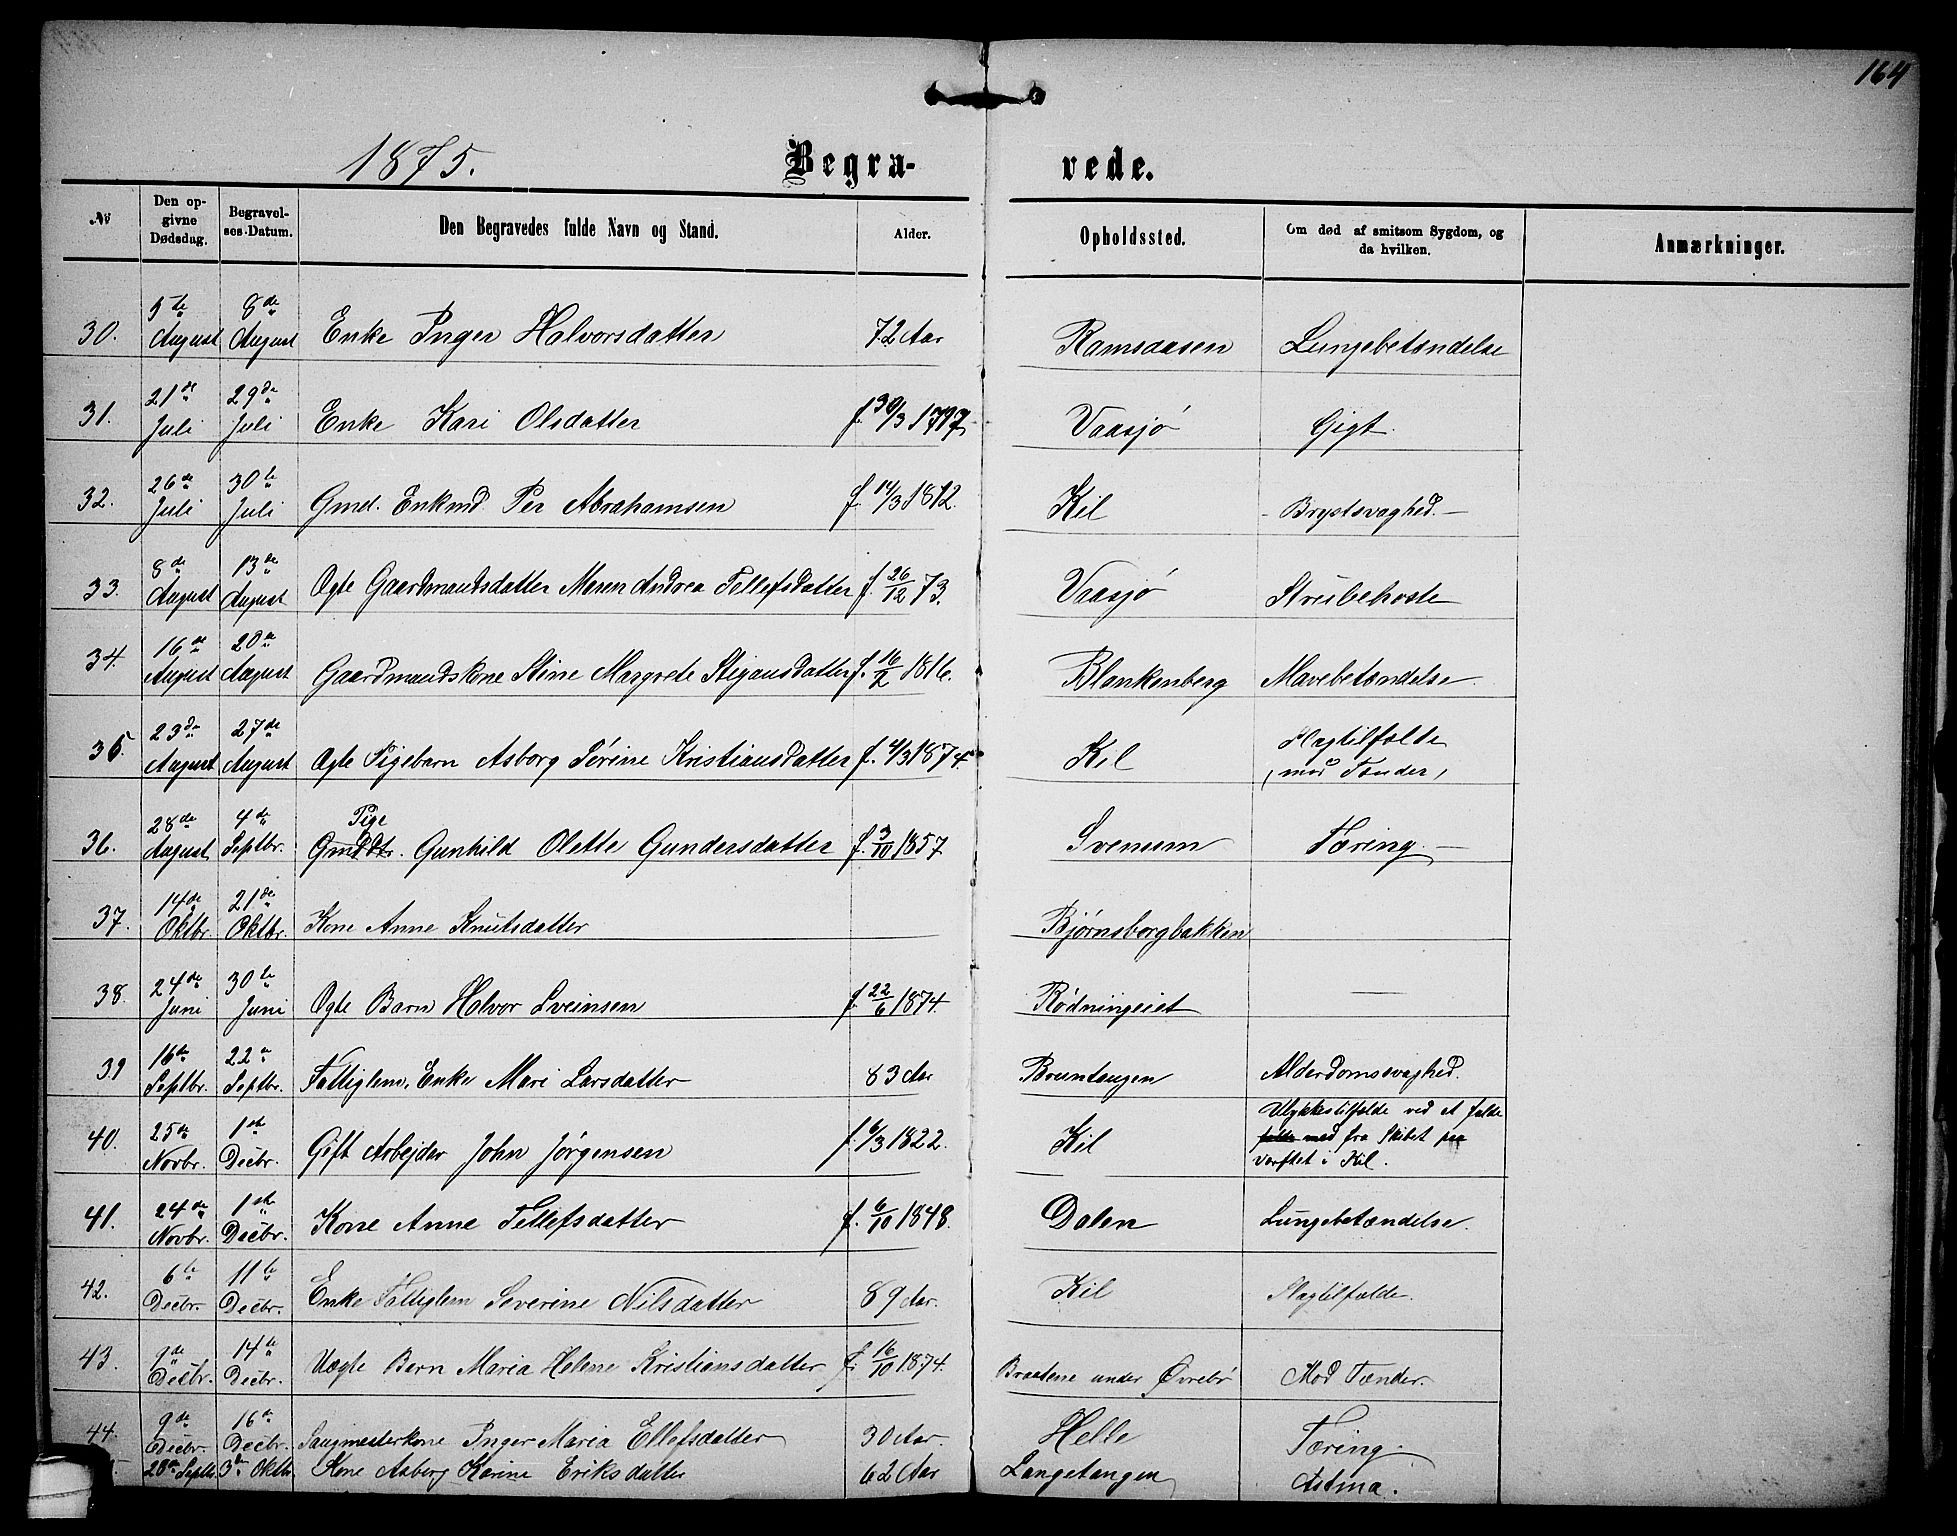 164
1875. Begra- vede.
№ Den op-givne Dødsdag. Begravel-ses-Datum. Den Begravedes fulde Navn og Stand. Alder. Opholdssted. Om død af smitsom Sygdom, og da hvilken. Anmærkninger.
30. 5te August 8de August Enke Inger Halvorsdatter 72 Aar Ramsdasen Lungebetændelse
31. 21de Juli 29de Juli Enke Kari Olsdatter f. 30/3 1797. Vaasjø Gigt.
32. 26de Juli 30te Juli Gmd. Enkmd Per Abrahamsen f. 14/3 1812. Kil - Brystsvaghed. -
33. 8de August 13de August Ægte Gaardmandsdatter Maren Andrea Tellefsdatter f. 26/12 73. Vaasjø Strubehoste
34. 16de August 20de August Gaardmandskone Stine Margrete Stiansdatter f. 16/2 1816. Blankenberg Mavebetændelse.
35. 23de August 27de August Ægte Pigebarn Asborg Sørine Kristiansdatter f. 4/3 1874. Kil Slagtilfælde
(mod Tænder)
Pige
36. 28de August 4de Septbr. Gmddtr. Gunhild Olette Gundersdatter f. 3/10 1857 Svenum Tæring. -
37. 14de Oktbr. 21de Oktbr. Kone Anne Knutsdatter Bjørnsborgbakken
38. 24de Juni 30te Juni Ægte Barn Halvor Sveinsen f. 22/6 1874. Rødningeiet —
39 16de Septbr. 22de Septbr. Fattiglem, Enke Mari Larsdatter 83 Aar Bruntangen Alderdomssvaghed.
40. 25de Novbr. 1ste Decbr. Gift Arbejder John Jørgensen f. 6/3 1822. Kil Ulykkestilfælde ved at falde
med fra Skibet paa
værftet i Kil.
41. 24de Novbr. 1ste Decbr. Kone Anne Tellefsdatter f. 6/10 1848. Dalen Lungebetændelse.
42. 6te Decbr. 11te Decbr. Enke Fattiglem Severine Nilsdatter 89 Aar. Kil Slagtilfælde.
43. 9de Decbr. 14de Decbr. Uægte Barn Maria Helene Kristiansdatter f. 16/10 1874. Braatene under Øvrebø Mod Tænder.
44. 9de Decbr. 16de Decbr. Saugmesterkone Inger Maria Ellefsdatter 30 Aar. Helle Tæring.
28de Septb. 3de Oktbr. Kone Asberg Karine Eriksdatter 62 Aar Langetangen Astma.